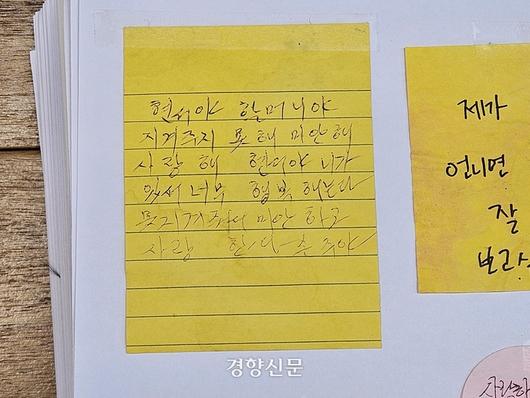 현서야 할머니야
지켜주지 못해 미안해
사랑해 현서야 니가
있서 너무 행복 했는다
못지켜주서 미안 하구
사랑 한다
제가
언니면
잘
보라
경향신문
사랑하